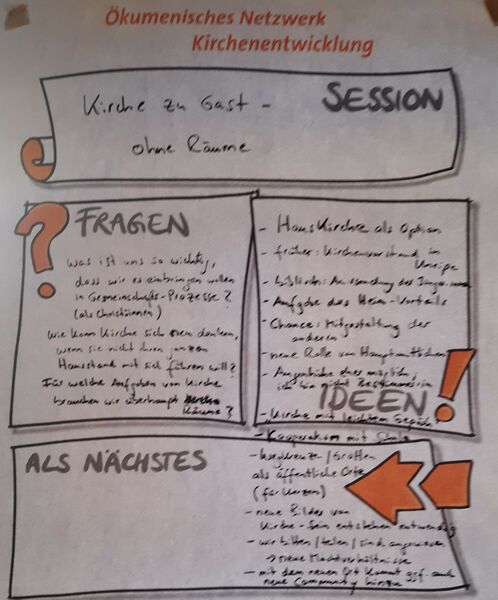 Ökumenisches Netzwerk
Kirchenentwicklung
SESSION
Kirche zu Gast -
ohne Räume
FRAGEN
was ist uns so wichtig,
dass wir es einbringen wollen
in Gemeinschafts-Prozesse?
(als Christinnen)
Wie kann Kirche sich denken,
wenn sie nicht ihren ganzen
Hausstand mit sich führen will?
Für welche Aufgaben von Kirche
brauchen wir überhaupt
Räume?
- Hauskirche als Option
- früher: Kirchenvorstand in
Kneipe
- biblisch: Aussendung der
- Aufgabe des Heim-Vorteils
- Chance: Mitgestaltung der
anderen
- neue Rolle von Hauptamtlichen
- Augenhöhe eher möglich,
ich bin nicht Bestimmerin
IDEEN!
- "Kirche mit leichtem Gepäck"
- Kooperation mit Schule
ALS NÄCHSTES
- Wegkreuze / Grotten
als öffentliche Orte
(für Kerzen)
- neue Bilder von
Kirche-Sein entstehen
- wir bitten / teilen / sind angewiesen
→ neue Machtverhältnisse
- mit dem neuen Ort kommt ggf. auch
neue Community hinzu